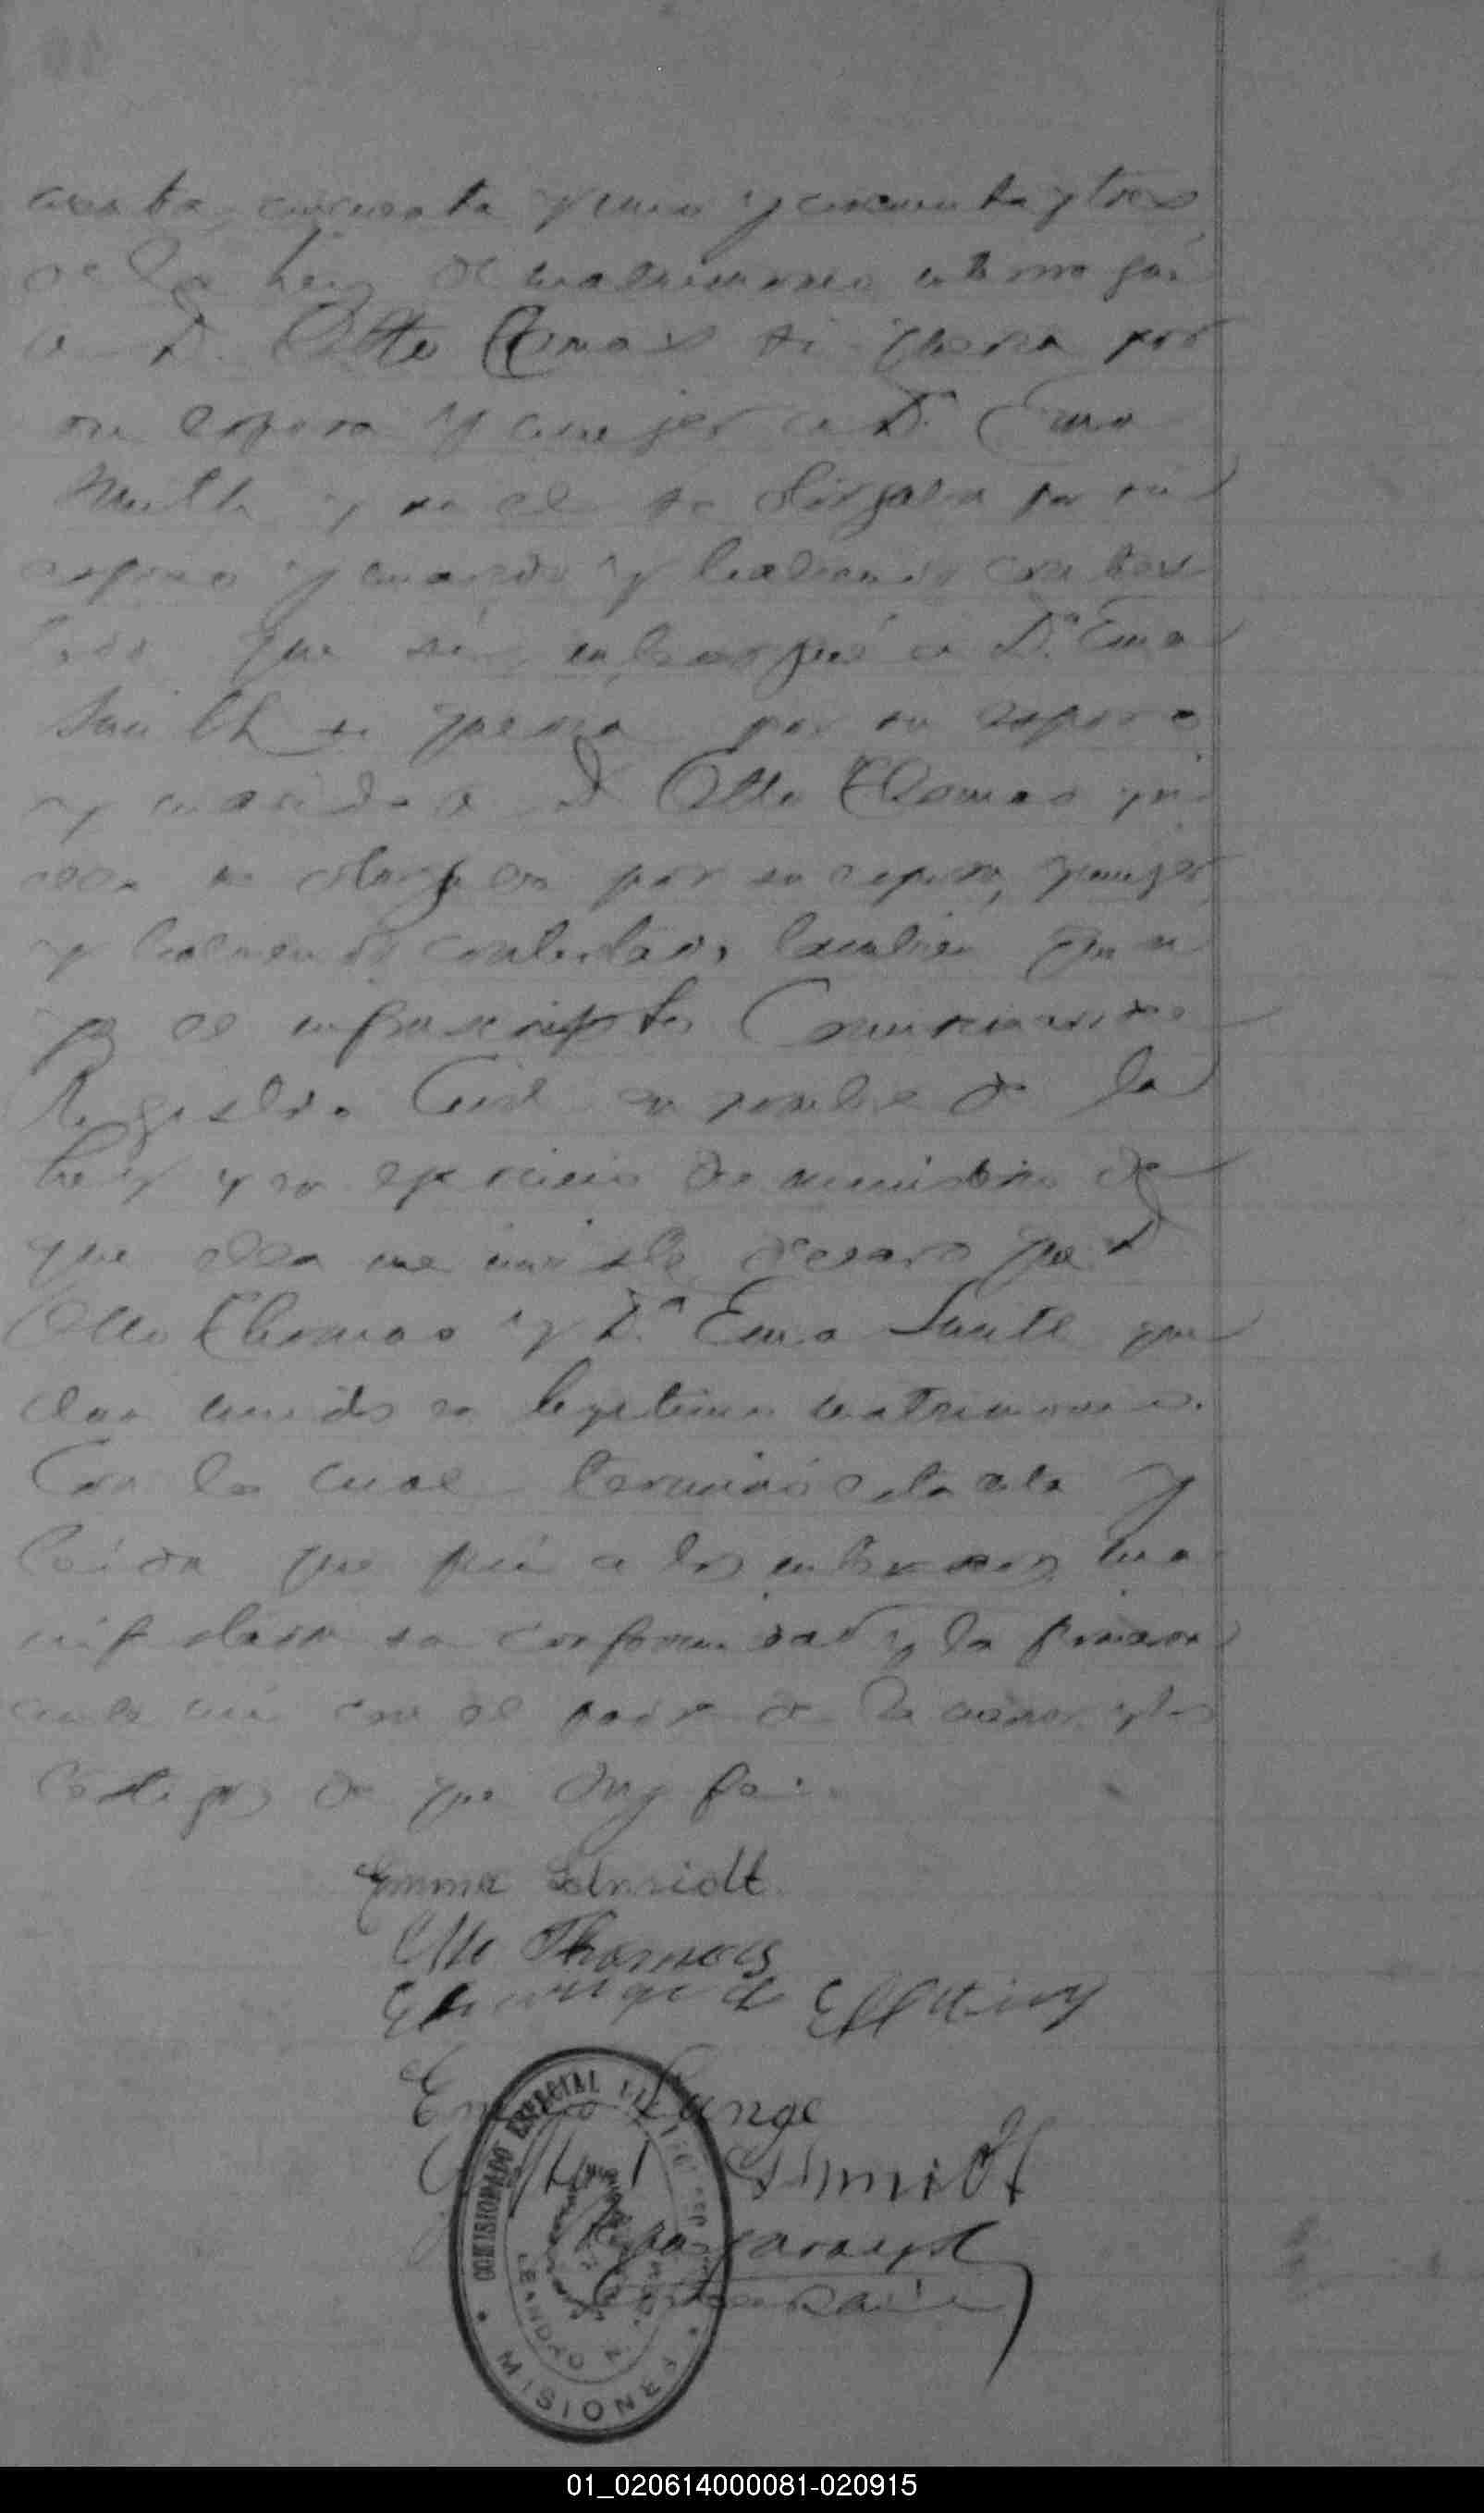 cuenta, cincuenta y uno y cincuenta y tres
de la Ley de matrimonio interrogué
a D. Otto Thomas si queria por
su esposa y mujer a Dª Ema
Smith y se el se otorgaba por su
esposo y marido y habiendo contes
tado que si, interrogué a Dª Ema
Smith si queria por su esposo
y marido a D Otto Thomas y si
ella se otorgaba por su esposa, y mujer
y habiendo contestado, tambien que si
yo el infrascripto Comisionado
Registro Civil en nombre de la
Ley y en ejercicio de ministerio de
que ella me inviste declaro que D
Otto Thomas y Dª Ema Smith que
dan unidos en legitimo matrimonio.
Con lo cual terminó esta acta y
leida que fué a los interesados ma
nifestaron su conformidad y la firmaron
ante mi con el padre de la menor y los
testigos de que doy fé.
Emma Schmidt
Otto Thomas
Lange
Schmidt
COMISIONADO ESPECIAL
LEANDRO N.
MISIONES
01_020614000081-020915